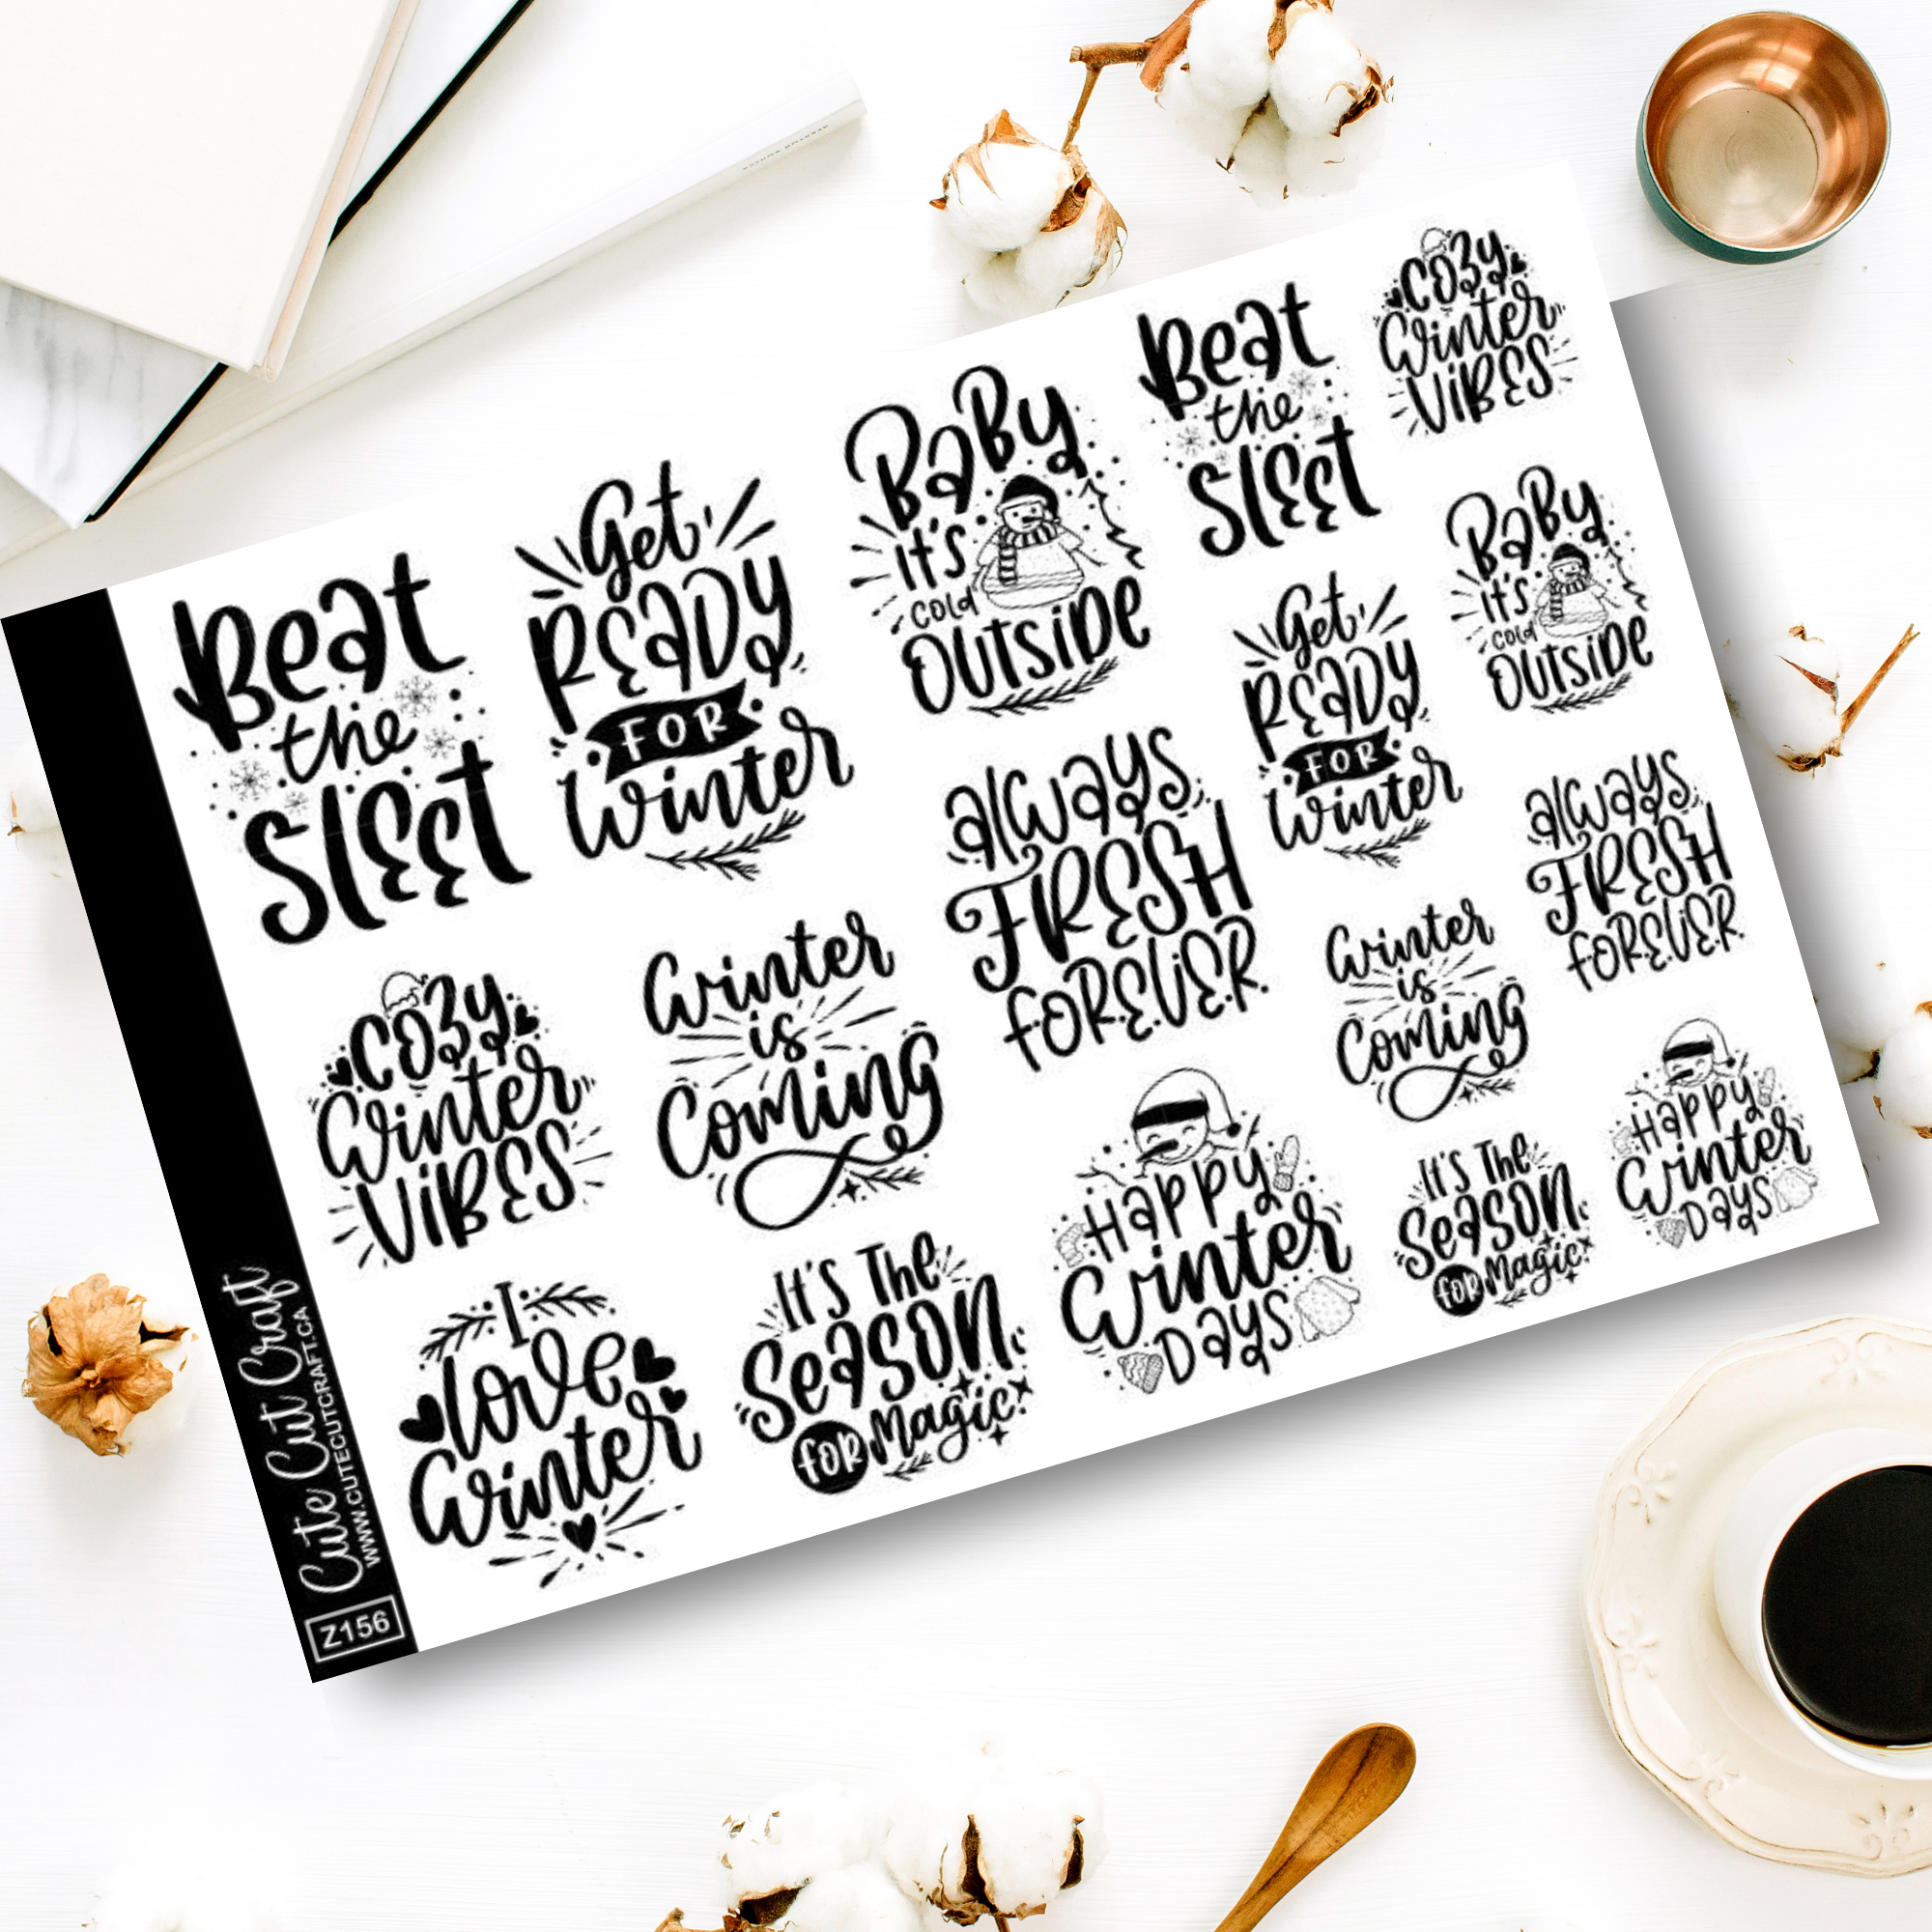 Beat
the
Sleet
Get
READY
FOR
Winter
Baby
It's
cold
OUTSIDE
Beat
the
Sleet
Cozy
Winter
VIBES
Cozy
Winter
VIBES
Winter
is
Coming
always
FRESH
FOREVER
Get
READY
FOR
Winter
Baby
It's
cold
OUTSIDE
I
love
Winter
It's The
SEASON
FOR Magic
Happy
Winter
Days
Winter
is
Coming
always
FRESH
FOREVER
It's The
SEASON
FOR Magic
Happy
Winter
Days
Cute Cut Craft
WWW.CUTECUTCRAFT.CA
Z156